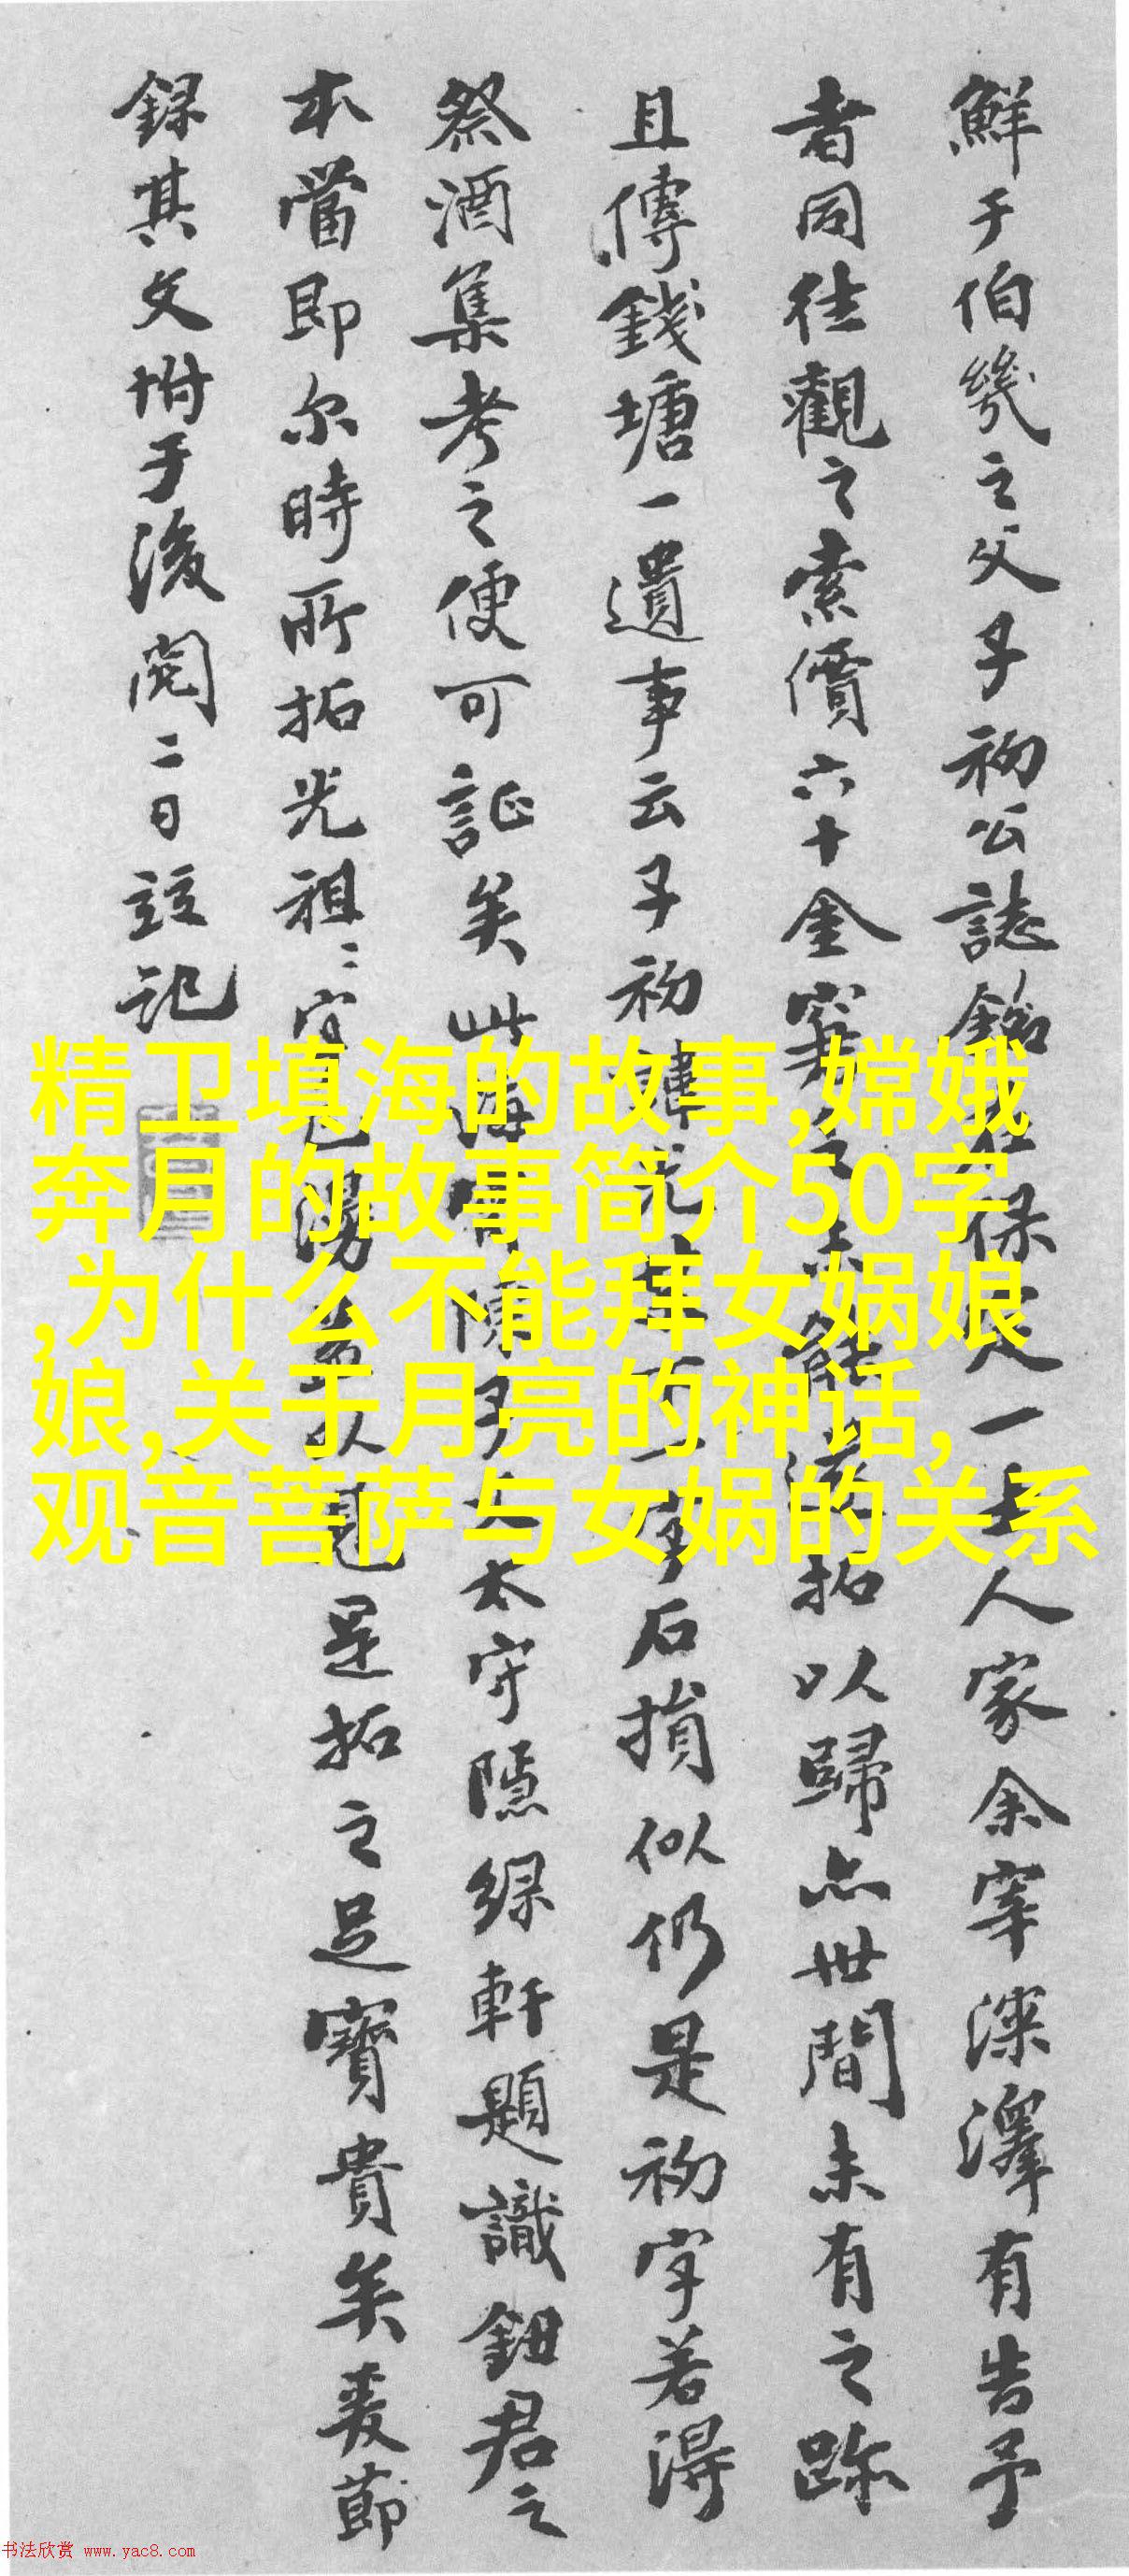 鮮于伯幾之父子初公誌銘在保定一士人家余宰深澤有告予
者同往觀之索價六十金窘之未能拓以歸亦世間未有之跡
且傳錢塘一遺事云子初諱光下一字石損似仍是初字若得
祭酒集考之便可証矣此海寧陳子太守隱綠軒題識鈕君之
本當即尔時所拓光祖二字已漫是拓之足寶貴矣爰節
録其文坿于後閱二日竝記
精卫填海的故事,嫦娥
奔月的故事简介50字
,为什么不能拜女娲娘
娘,关于月亮的神话,
观音菩萨与女娲的关系
书法欣赏 www.yac8.com